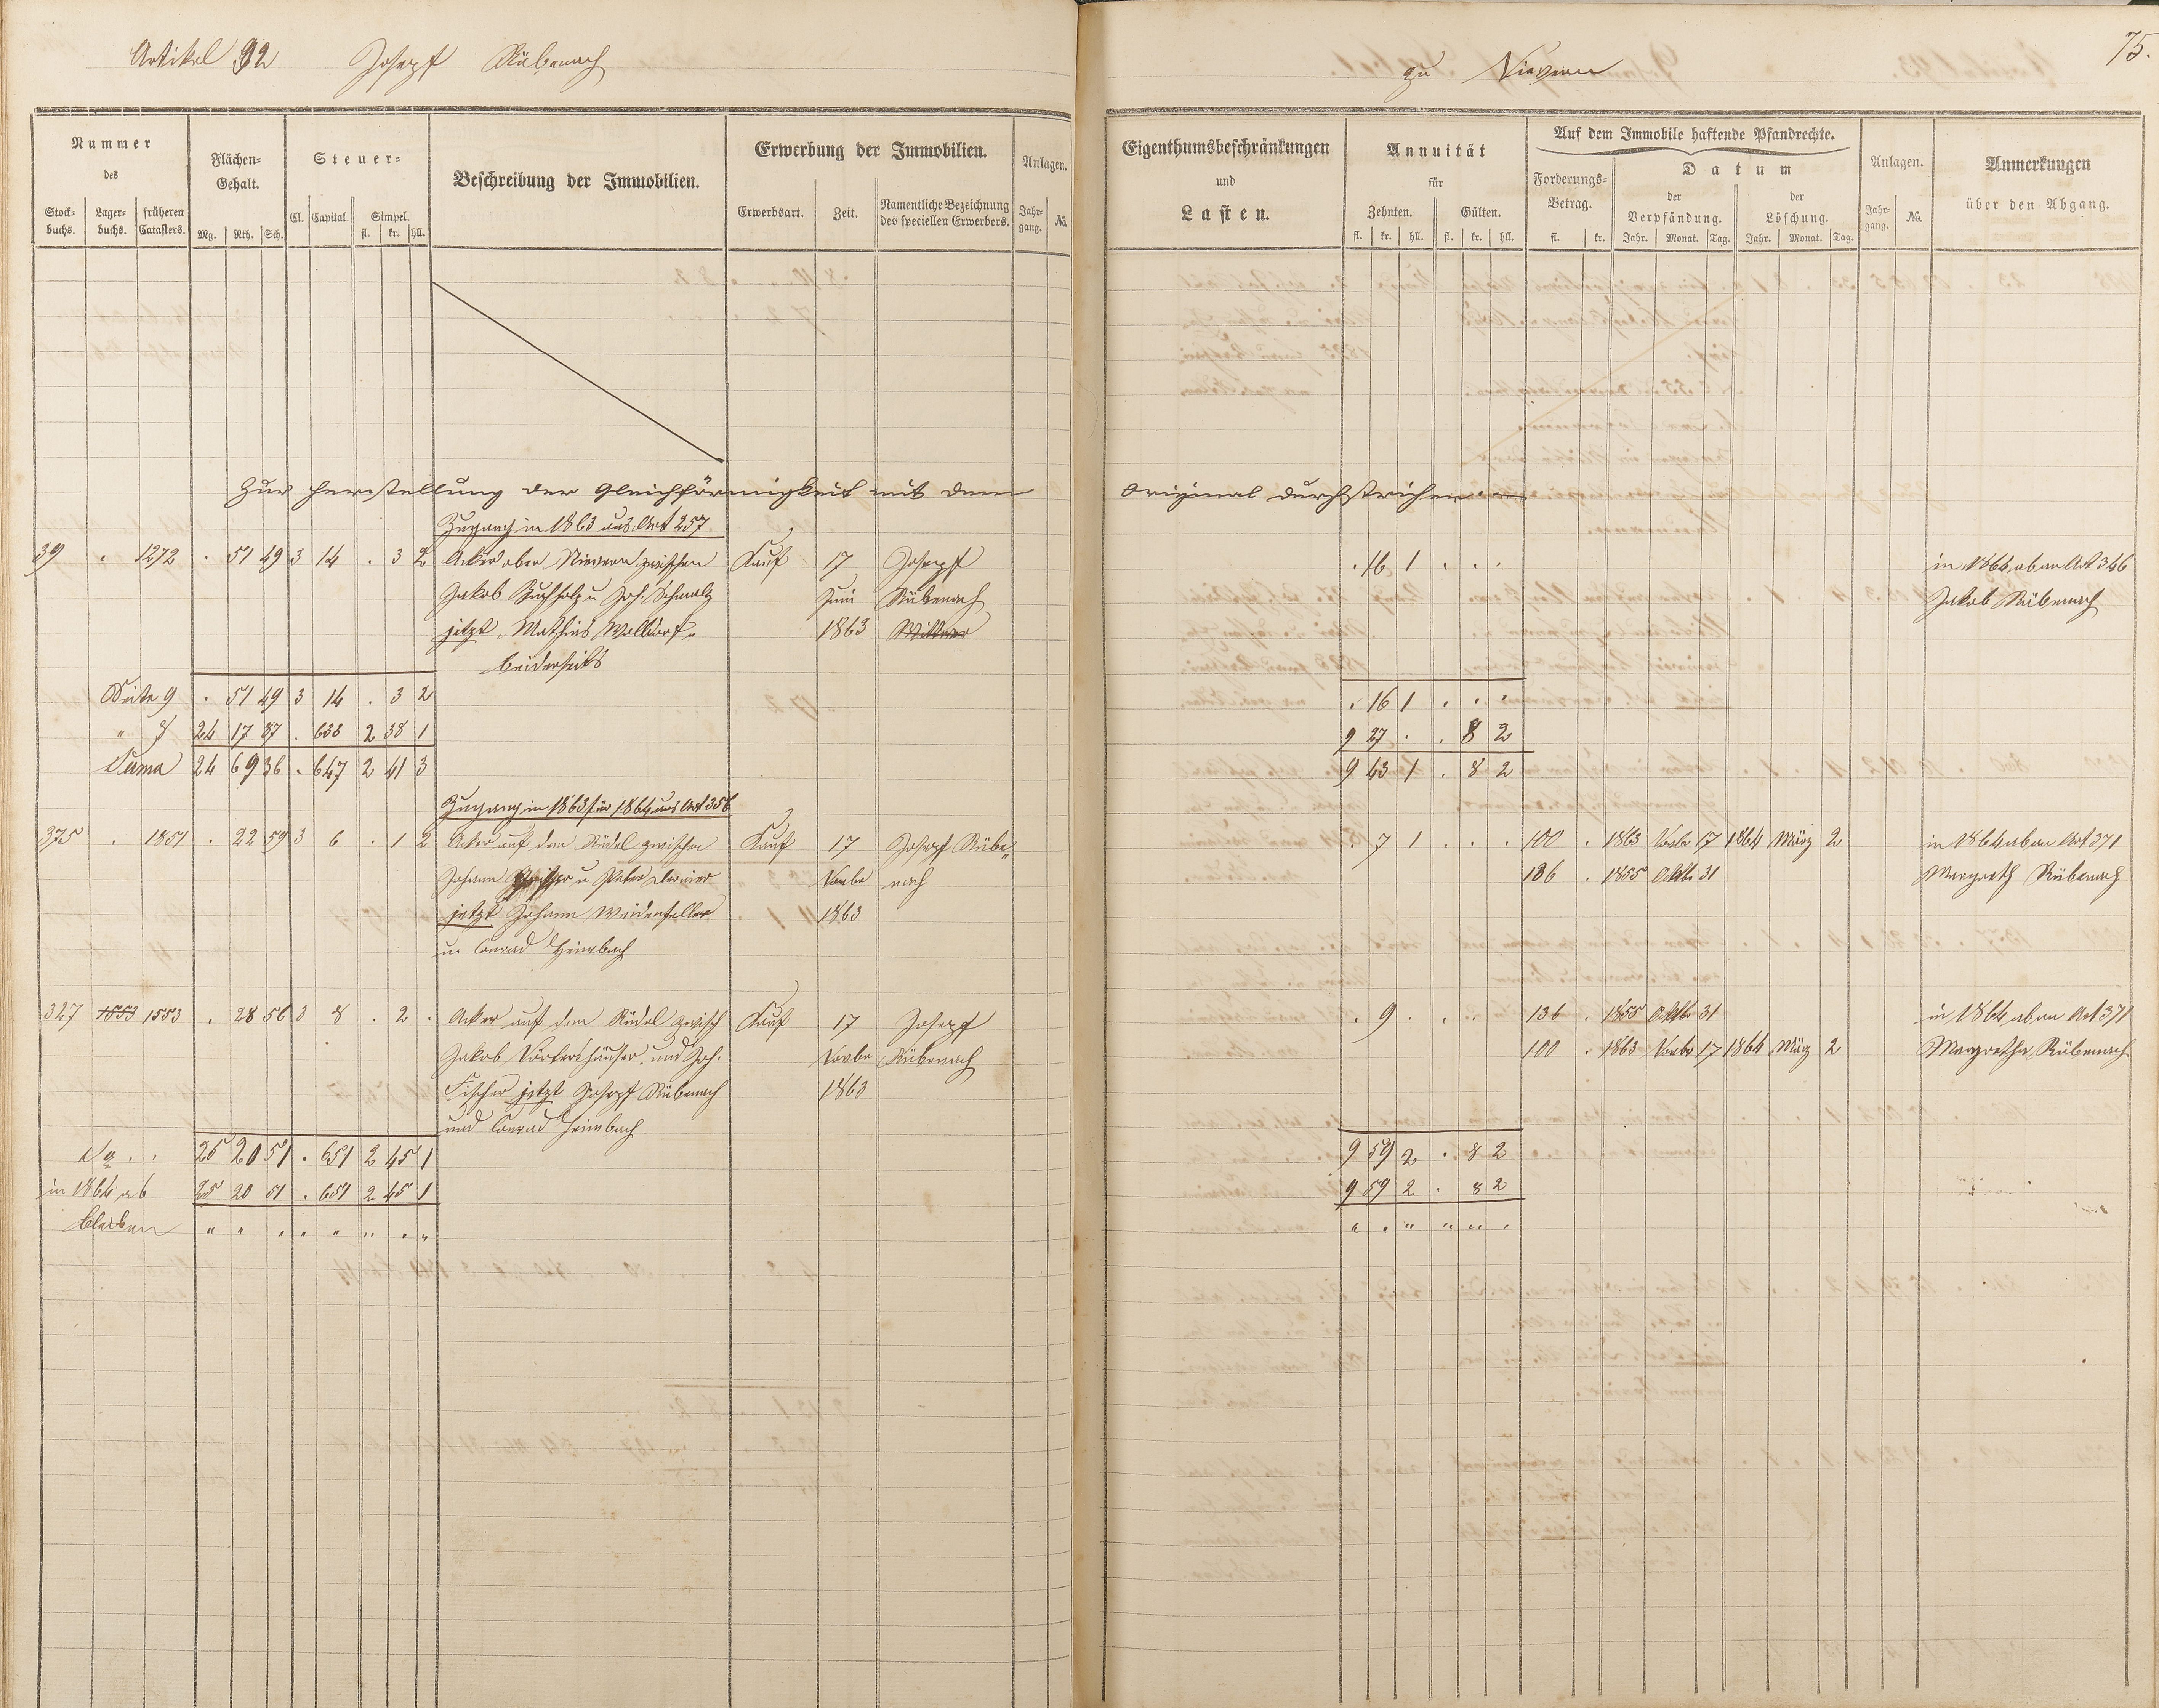 Artikel 92 Joseph Rübenach
zu Nievern
75.
Nummer des
Stockbuchs. Lagerbuchs. früheren Catasters.
Flächen-Gehalt.
Mg. Rth. Sch.
Steuer-
Cl. Capital. Simpel.
fl. kr. hll.
Beschreibung der Immobilien.
Erwerbung der Immobilien.
Erwerbsart. Zeit. Namentliche Bezeichnung des speciellen Erwerbers.
Anlagen.
Jahrgang. No.
Eigenthumsbeschränkungen und Lasten.
Annuität für
Zehnten. Gülten.
fl. kr. hll. fl. kr. hll.
Auf dem Immobile haftende Pfandrechte.
Forderungs-Betrag.
fl. kr.
Datum
der Verpfändung. der Löschung.
Jahr. Monat. Tag. Jahr. Monat. Tag.
Anlagen.
Jahrgang. No.
Anmerkungen über den Abgang.
Zur Herstellung der Gleichförmigkeit mit dem Original durchstrichen.
Zugang in 1863 aus Art 257
39 . 1272 . 51 49 3 14 . 3 2 Acker ober Nievern zwischen Kauf 17 Joseph . 16 1 . . . in 1864 ab an Art 346
Jakob Buchholz u Joh. Schmalz Juni Rübenach Jakob Rübenach
jetzt Mathias Walldorf 1863
beiderseits
Seite 9 . 51 49 3 14 . 3 2 . 16 1 . . .
" 7 24 17 87 . 633 2 38 1 9 27 . . 8 2
Suma 24 69 36 . 647 2 41 3 9 43 1 . 8 2
Zugang in 1863 für 1864 aus Art 356
375 . 1851 . 22 59 3 6 . 1 2 Acker auf dem Rüdel zwischen Kauf 17 Joseph Rübe- . 7 1 . . . 100 . 1863 Novbr 17 1864 März 2 in 1864 ab an Art 371
Johann u Peter Novbr nach 136 . 1855 Oktbr 31 Margreth Rübenach
jetzt Johann Weidenfeller 1863
u Conrad Heimbach
327 1853 1553 . 28 56 3 8 . 2 . Acker auf dem Rüdel zwisch Kauf 17 Joseph . 9 . . . . 136 . 1855 Oktbr 31 in 1864 ab an Art 371
Jakob und Joh. Novbr Rübenach 100 . 1863 Novbr 17 1864 März 2 Margretha Rübenach
Fischer jetzt Joseph Rübenach 1863
und Conrad Heimbach
Sa . . 25 20 51 . 651 2 45 1 9 59 2 . 8 2
in 1864 ab 25 20 51 . 651 2 45 1 9 59 2 . 8 2
bleiben " " " " " " " " " " " " " "